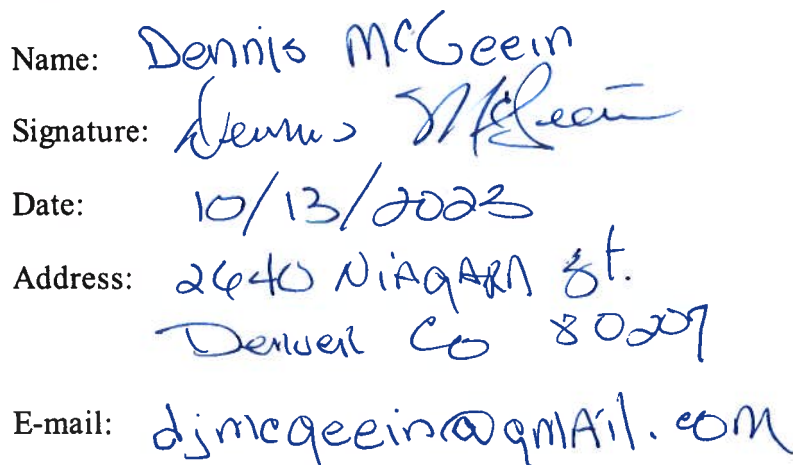 Name: Dennis McGeein
Signature: Dennis McGeein
Date: 10/13/2023
Address: 2640 Niagara St.
Denver Co 80207
E-mail: djmcgeein@gmail.com